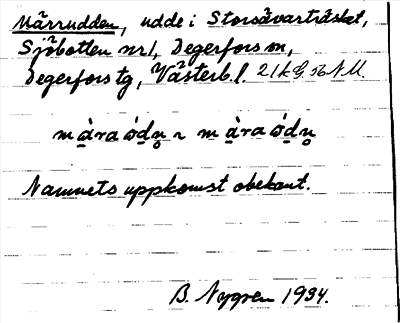 Märrudden, udde i Storsävarträsket,
Sjöbotten nr1, Degerfors sn,
Degerfors tg, Västerb. l. 21k
màraȯ́dn̥ ~ màraȯ́dn̥
Namnets uppkomst obekant.
B. Nygren 1934.